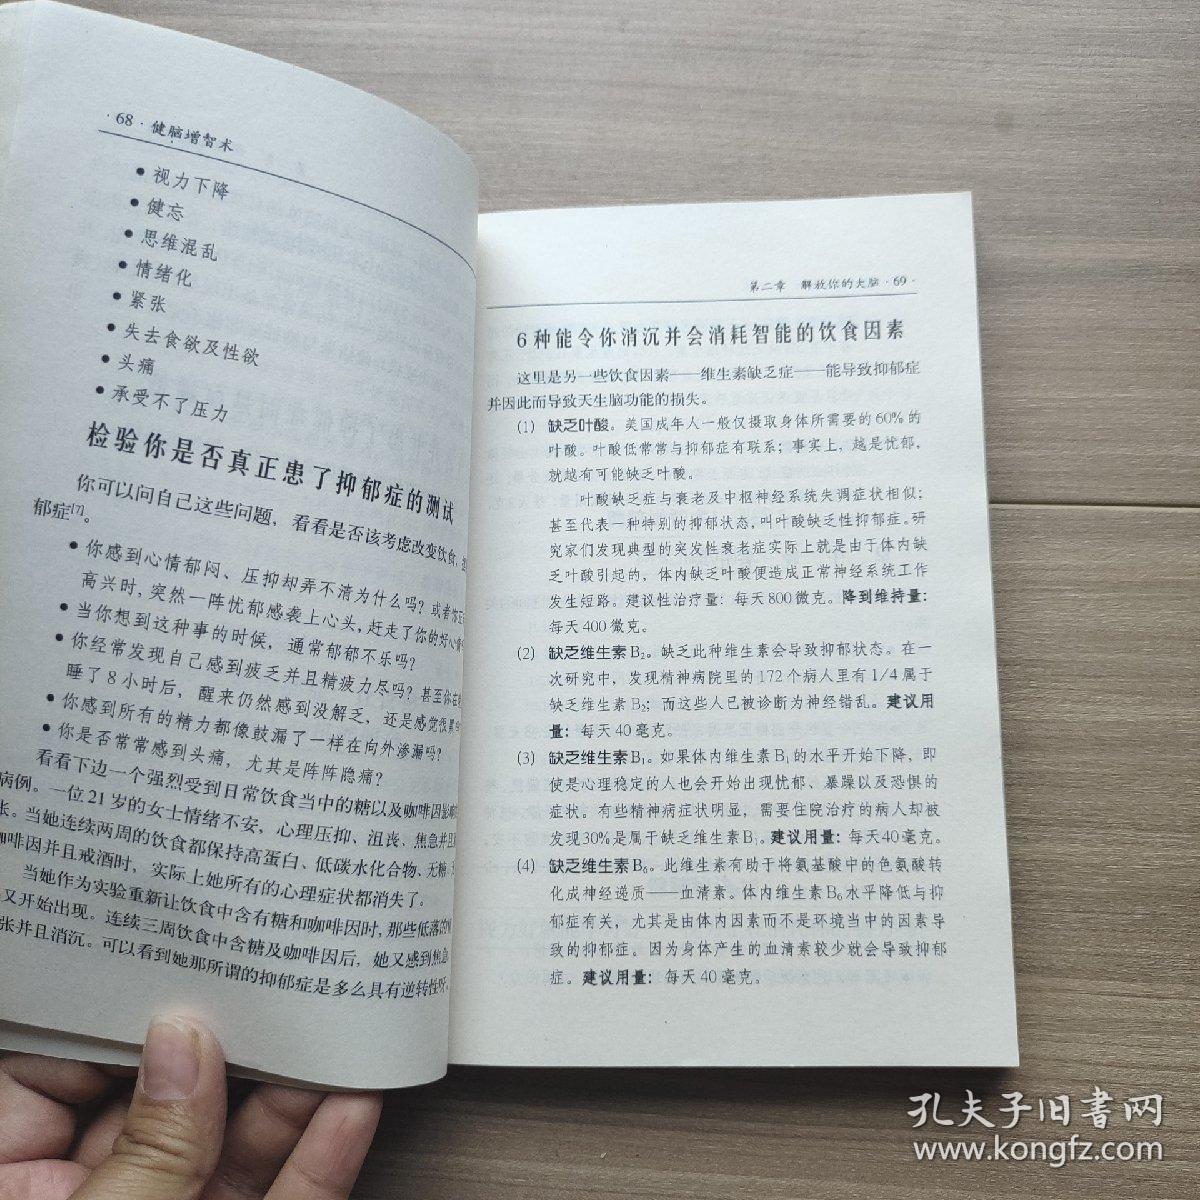 ·68·健脑增智术
●视力下降
●健忘
●思维混乱
●情绪化
●紧张
●失去食欲及性欲
●头痛
●承受不了压力
检验你是否真正患了抑郁症的测试
你可以问自己这些问题，看看是否该考虑改变饮食，
郁症[7]。
●你感到心情郁闷、压抑却弄不清为什么吗？或者你正
高兴时，突然一阵忧郁感袭上心头，赶走了你的好心情
●当你想到这种事的时候，通常郁郁不乐吗？
●你经常发现自己感到疲乏并且精疲力尽吗？甚至你在
睡了8小时后，醒来仍然感到没解乏，还是感觉很累
●你感到所有的精力都像鼓漏了一样在向外渗漏吗？
●你是否常常感到头痛，尤其是阵阵隐痛？
看看下边一个强烈受到日常饮食当中的糖以及咖啡因影响
病例。一位21岁的女士情绪不安，心理压抑、沮丧、焦急并且
张。当她连续两周的饮食都保持高蛋白、低碳水化合物、无糖、
咖啡因并且戒酒时，实际上她所有的心理症状都消失了。
当她作为实验重新让饮食中含有糖和咖啡因时，那些低落的
又开始出现。连续三周饮食中含糖及咖啡因后，她又感到焦急、
张并且消沉。可以看到她那所谓的抑郁症是多么具有逆转性呀。
第二章 解放你的大脑·69·
6种能令你消沉并会消耗智能的饮食因素
这里是另一些饮食因素——维生素缺乏症——能导致抑郁症
并因此而导致天生脑功能的损失。
(1) 缺乏叶酸。美国成年人一般仅摄取身体所需要的60%的
叶酸。叶酸低常常与抑郁症有联系；事实上，越是忧郁，
就越有可能缺乏叶酸。
叶酸缺乏症与衰老及中枢神经系统失调症状相似；
甚至代表一种特别的抑郁状态，叫叶酸缺乏性抑郁症。研
究家们发现典型的突发性衰老症实际上就是由于体内缺
乏叶酸引起的，体内缺乏叶酸便造成正常神经系统工作
发生短路。建议性治疗量：每天800微克。降到维持量：
每天400微克。
(2) 缺乏维生素B₂。缺乏此种维生素会导致抑郁状态。在一
次研究中，发现精神病院里的172个病人里有1/4属于
缺乏维生素B₂；而这些人已被诊断为神经错乱。建议用
量：每天40毫克。
(3) 缺乏维生素B₁。如果体内维生素B₁的水平开始下降，即
使是心理稳定的人也会开始出现忧郁、暴躁以及恐惧的
症状。有些精神病症状明显，需要住院治疗的病人却被
发现30%是属于缺乏维生素B₁。建议用量：每天40毫克。
(4) 缺乏维生素B₆。此维生素有助于将氨基酸中的色氨酸转
化成神经递质——血清素。体内维生素B₆水平降低与抑
郁症有关，尤其是由体内因素而不是环境当中的因素导
致的抑郁症。因为身体产生的血清素较少就会导致抑郁
症。建议用量：每天40毫克。
孔夫子旧书网
www.kongfz.com